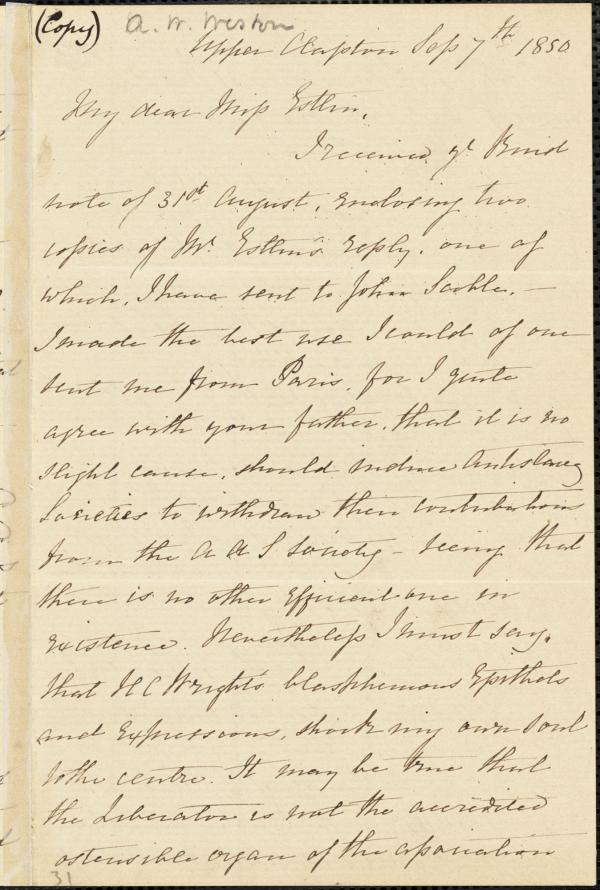 (Copy) A. W. Weston
Upper Clapton Sep 7th 1850
My dear Miss Estlin,
I received yr kind
note of 31st August, enclosing two
copies of Mr Estlin's reply, one of
which, I have sent to John Scoble. —
I made the best use I could of one
sent me from Paris, for I quite
agree with your father, that it is no
slight cause, should induce Antislavery
Societies to withdraw their contributions
from the A A S Society — seeing that
there is no other efficient one in
existence. Nevertheless I must say,
that H C Wright's blasphemous Epithets
and Expressions, shock my own soul
to the centre. It may be true that
the Liberator is not the accredited
ostensible organ of the association
31